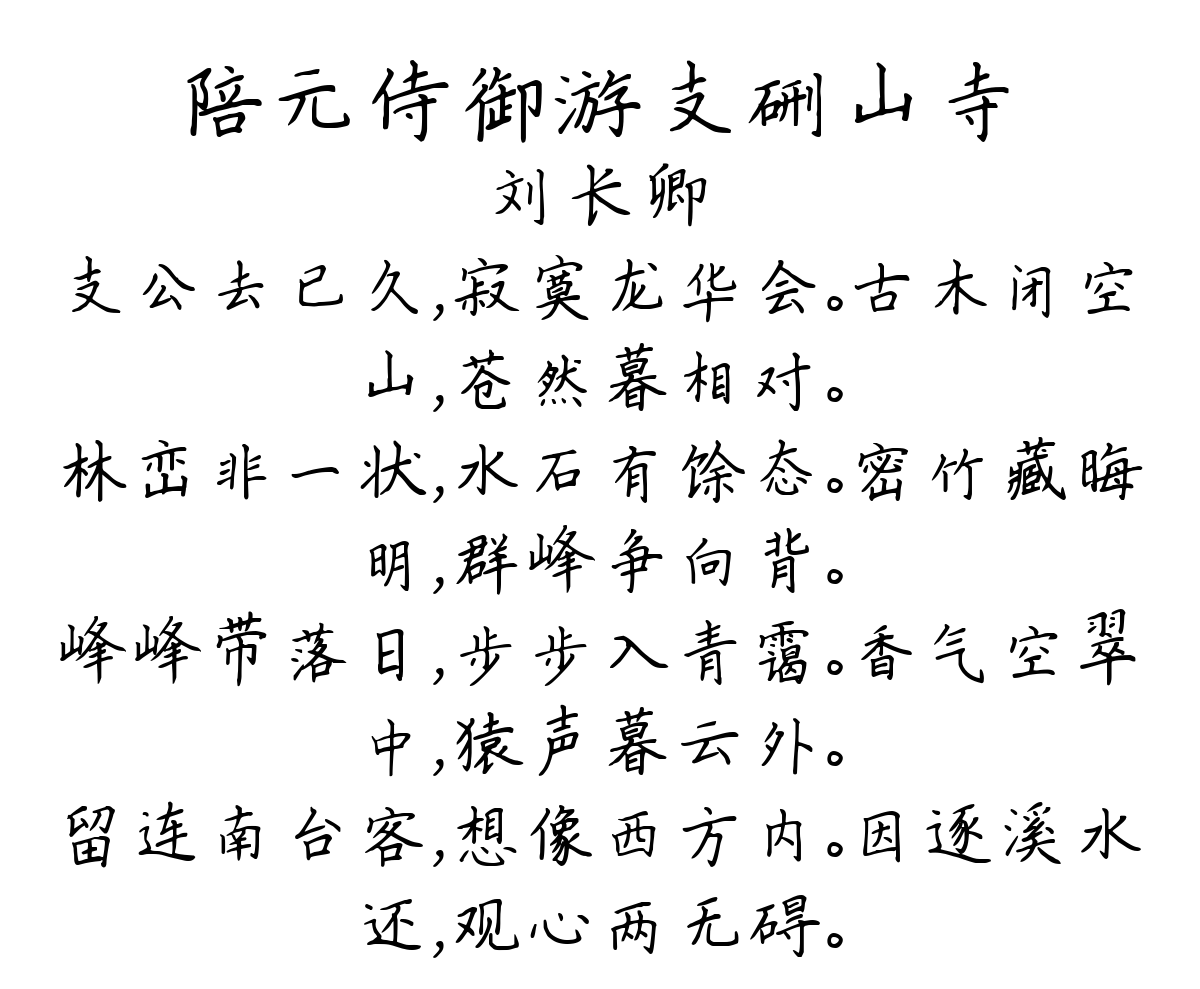 陪元侍御游支硎山寺
刘长卿
支公去已久,寂寞龙华会。古木闭空
山,苍然暮相对。
林峦非一状,水石有馀态。密竹藏晦
明,群峰争向背。
峰峰带落日,步步入青霭。香气空翠
中,猿声暮云外。
留连南台客,想像西方内。因逐溪水
还,观心两无碍。